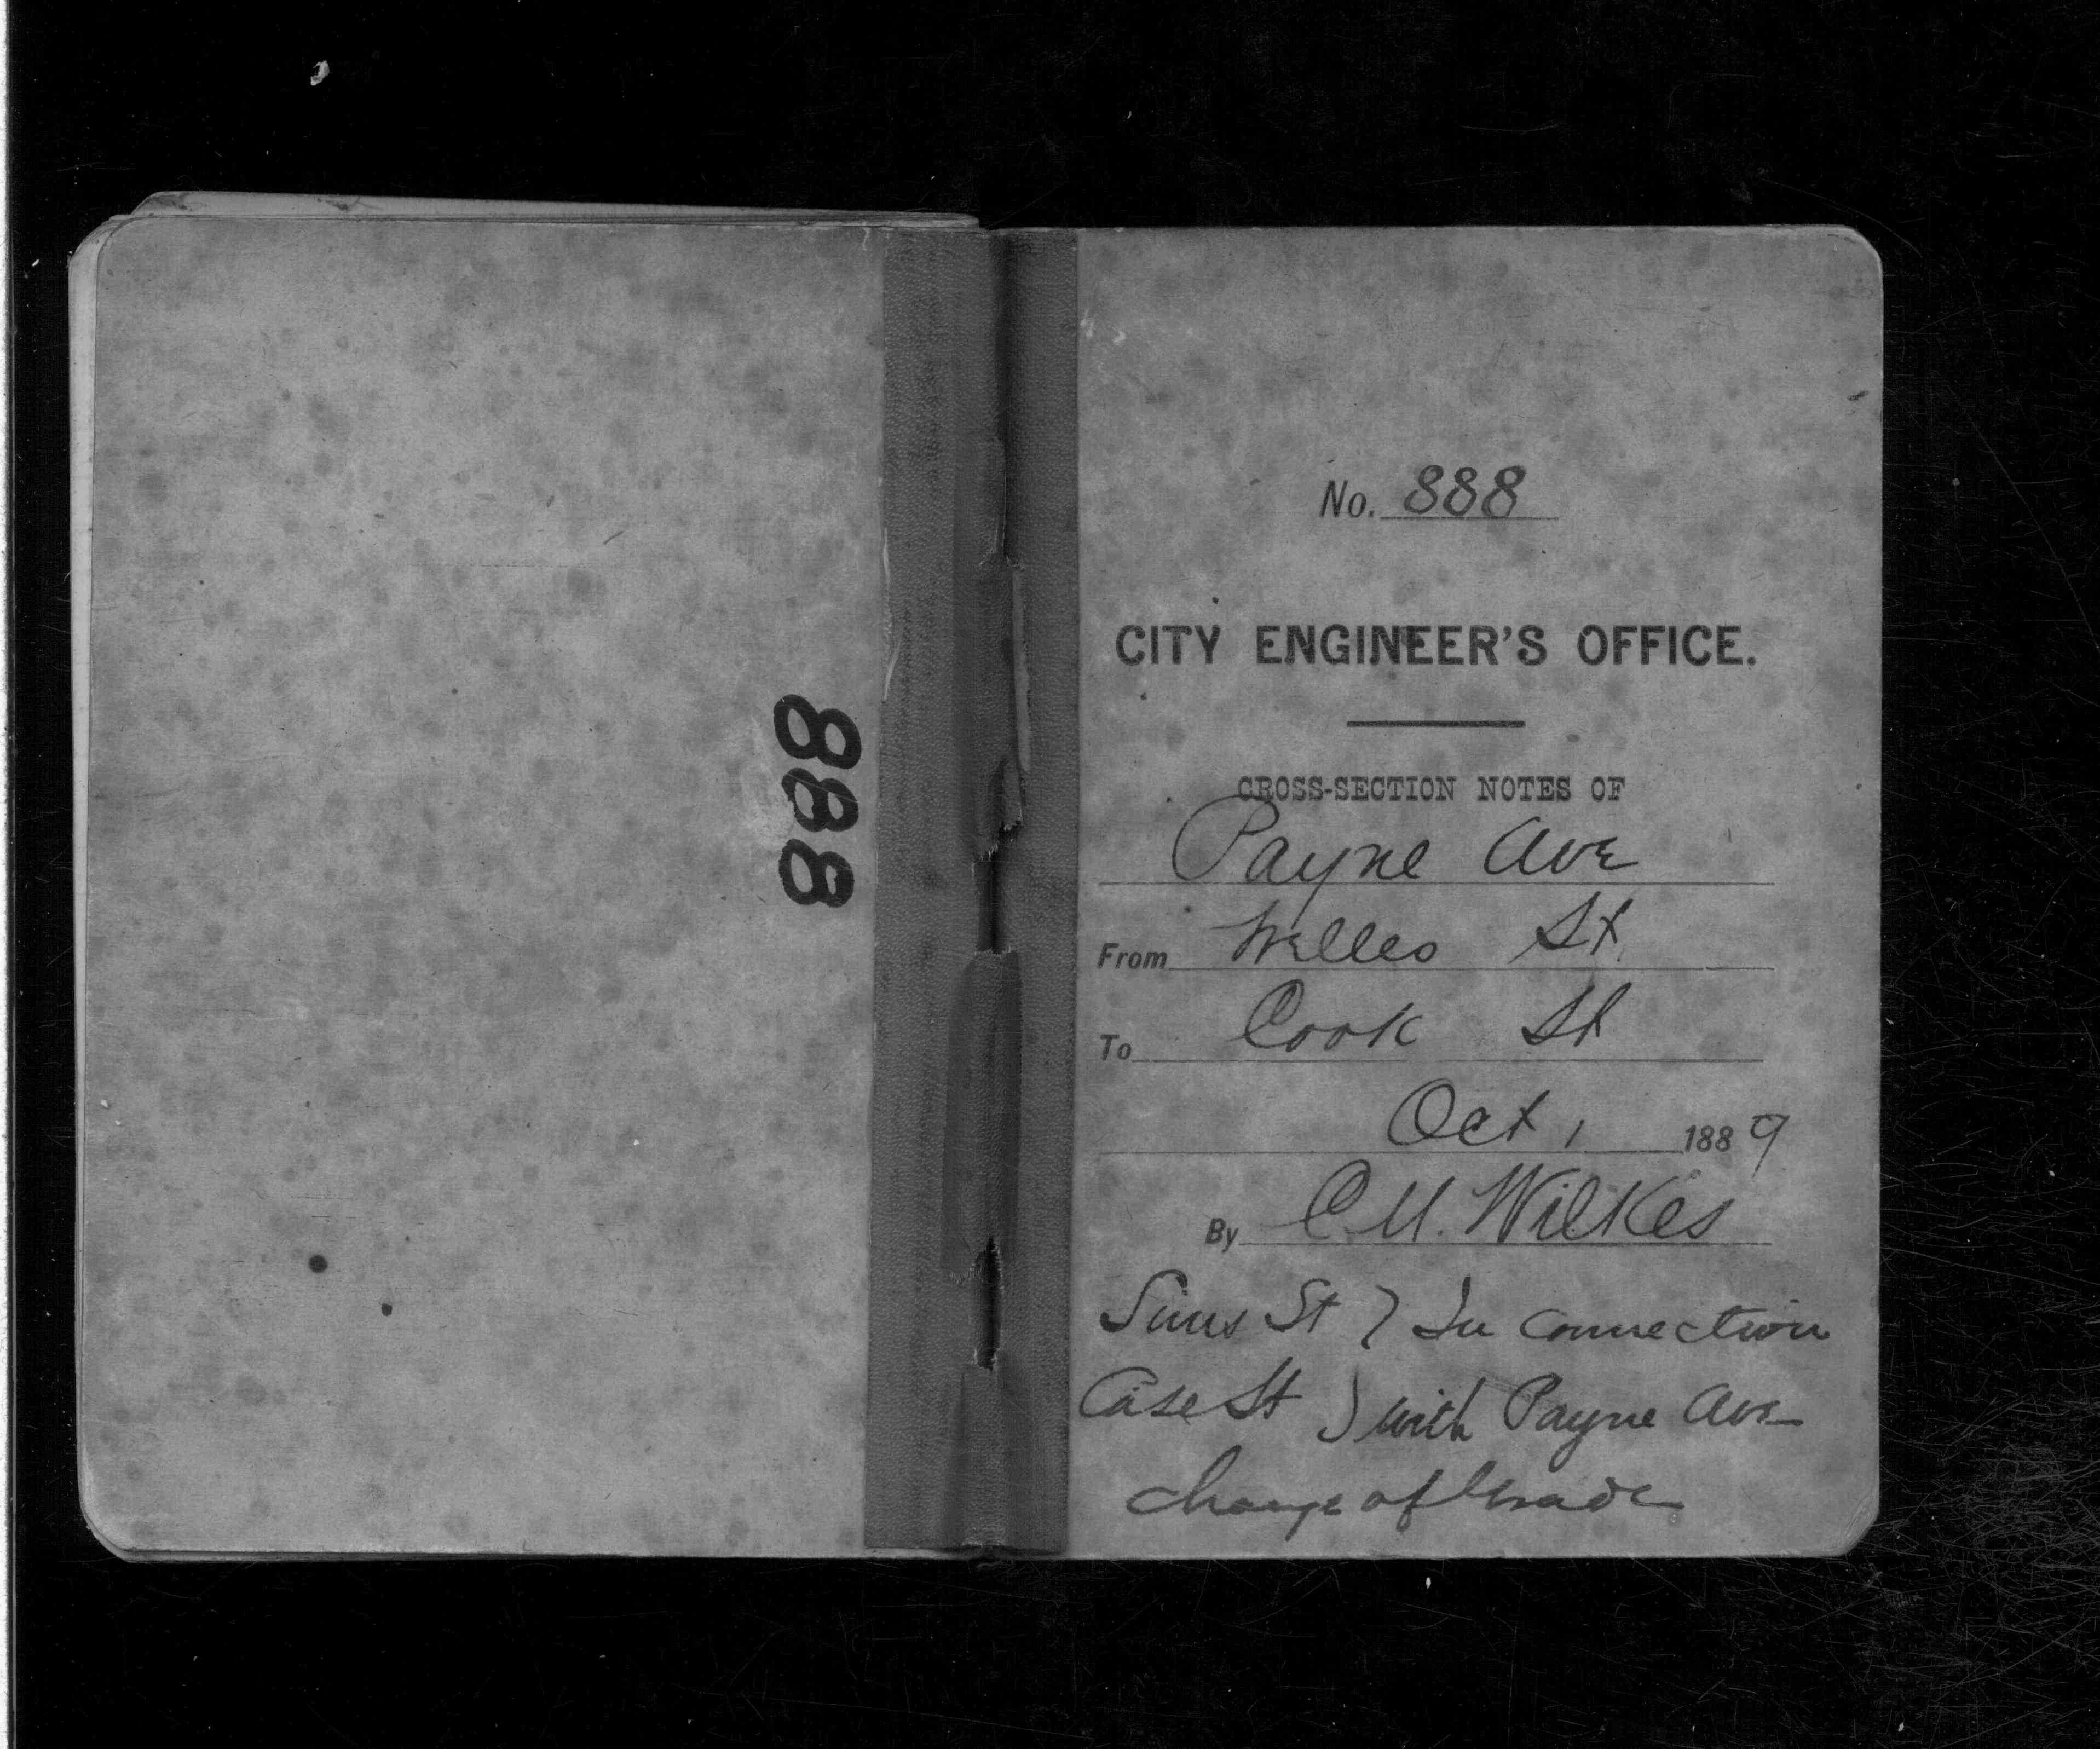 888
No. 888
CITY ENGINEER'S OFFICE.
CROSS-SECTION NOTES OF
Payne Ave
From Welles St.
To Cook St
Oct 1 1889
By C. M. Wilkes
Sims St } In connection
Case St } with Payne Ave
change of Grade